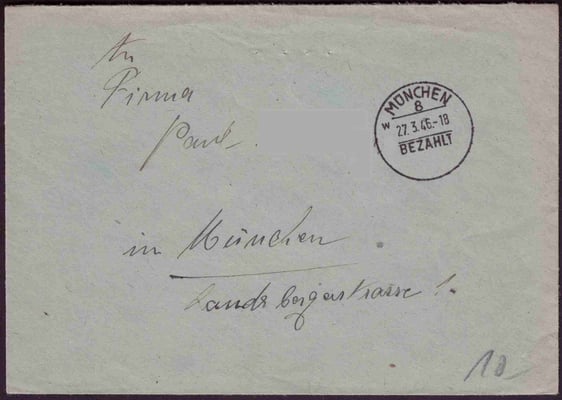 An
Firma
Paul
MÜNCHEN
8
w
27.3.46.-18
BEZAHLT
in München
Landsbergerstrasse 1.
10